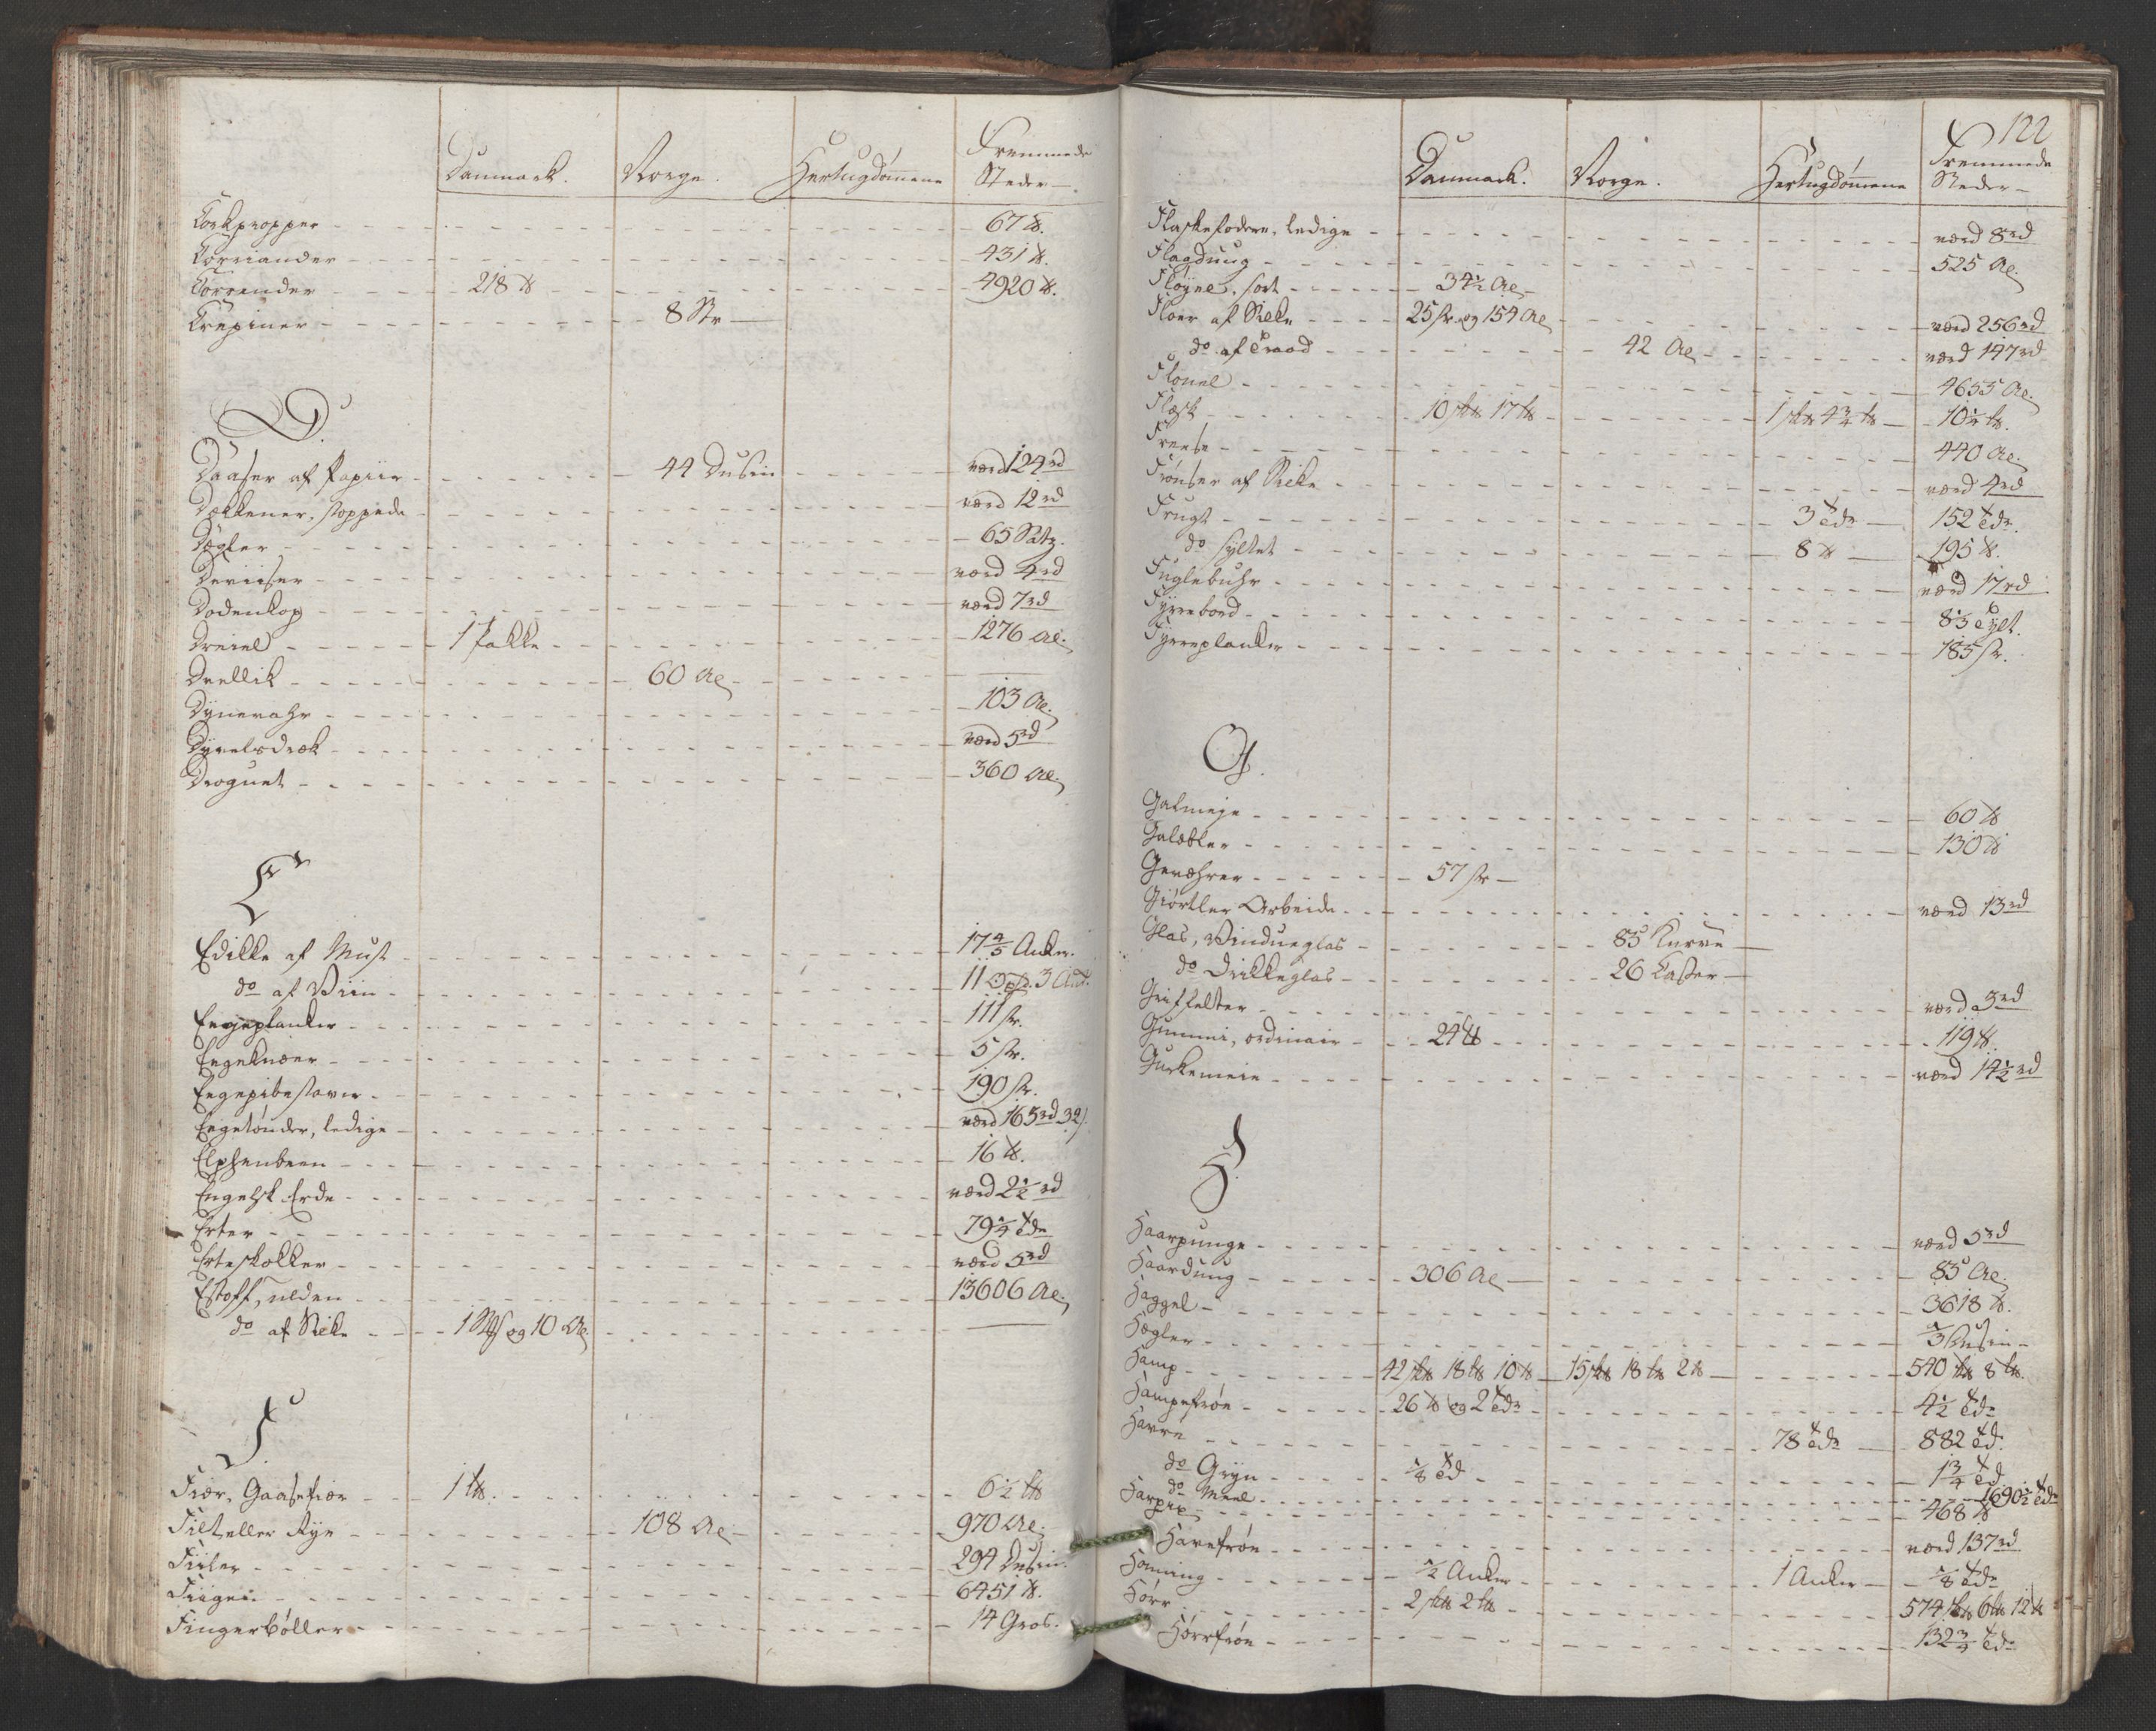 Danmark. Norge. Hertugdömmene Fremmede Steder
Korkpropper 67 ℔.
Korriander 431 ℔.
Korrender 218 ℔ 4920 ℔.
Krepiner 8 Str
D.
Daaser af Papiir 44 Dusin værd 124 rd
Dækkener, stoppede værd 12 rd
Degler 65 Satz.
Deviiser værd 4 rd
Dodenkop værd 7 rd
Dreiel 1 Pakke 1276 Al.
Drellik 60 Al
Dynevahr 103 Al.
Dyvelsdræk værd 5 rd
Droguet 360 Al.
E
Edikke af Must 17 4/5 Anker.
do af Viin 11 Oxh. 3 Ank.
Eegeplanker 111 st.
Eegeknæer 5 st.
Eegepibestaver 190 st.
Eegetönder, ledige værd 165 rd 32 s.
Elphenbeen 16 ℔.
Engelsk Erde værd 2 1/2 rd
Erter 79 1/4 Tdr
Erteskokker værd 5 rd
Estoff, ulden 13606 Al.
do af Silke 1 St og 10 Al
F
Fiær, Gaasefiær 1 L℔. 6 1/2 L℔
Filt eller Rye 108 Al 970 Al.
Fiiler 294 Dusin.
Fiigen 6451 ℔.
Fingerböller 14 Gros.
122
Danmark. Norge. Hertugdömmene Fremmede Steder
Flaskefodere, ledige værd 8 rd
Flagduug 525 Al.
Fløyel, sort 34 1/2 Al
Floer af Silke 25 st. og 154 Al værd 256 rd
do af Traad 42 Al værd 147 rd
Flonel 4655 Al.
Flesk 10 sk℔ 17 L℔ 1 sk℔ 4 3/4 L℔ 10 1/4 L℔.
Freese 440 Al.
Frönser af Silke værd 4 rd
Frugt 3 Tdr 152 Tdr.
do syltet 8 ℔ 195 ℔.
Fuglebuhr værd 17 rd
Fyrrebord 8 1/3 Tylt.
Fyrreplanker 185 st.
G.
Galmeye 60 ℔
Galæbler 130 ℔
Geværer 57 st
Giörtler Arbeide værd 13 rd
Glas, Vindueglas 85 Kurve
do Drikkeglas 26 Kasser
Griffelter værd 3 rd
Gummi, ordinair 24 ℔ 119 ℔.
Gurkemeie værd 14 1/2 rd
H.
Haarpunge værd 5 rd
Haardúug 306 Al 85 Al.
Haggel 3618 ℔.
Hegler 1/3 Dusin
Hamp 42 sk℔ 18 L℔ 10 ℔ 15 sk℔ 18 L℔ 2 ℔ 540 sk℔ 8 L℔.
Hampefröe 26 ℔ og 2 Tdr 4 1/2 Tdr
Havre 78 Tdr 882 Td.
do Gryn 1/8 Td 1 3/4 Td
do Meel 1690 1/2 Tdr
Harpix 468 ℔
Havefröe værd 137 rd
Honning 1/2 Anker 1 Anker 1/8 Tdr
Hörr 2 sk℔ 2 L℔ 574 sk℔ 6 L℔ 12 ℔
Hörrfröe 132 3/4 Tdr